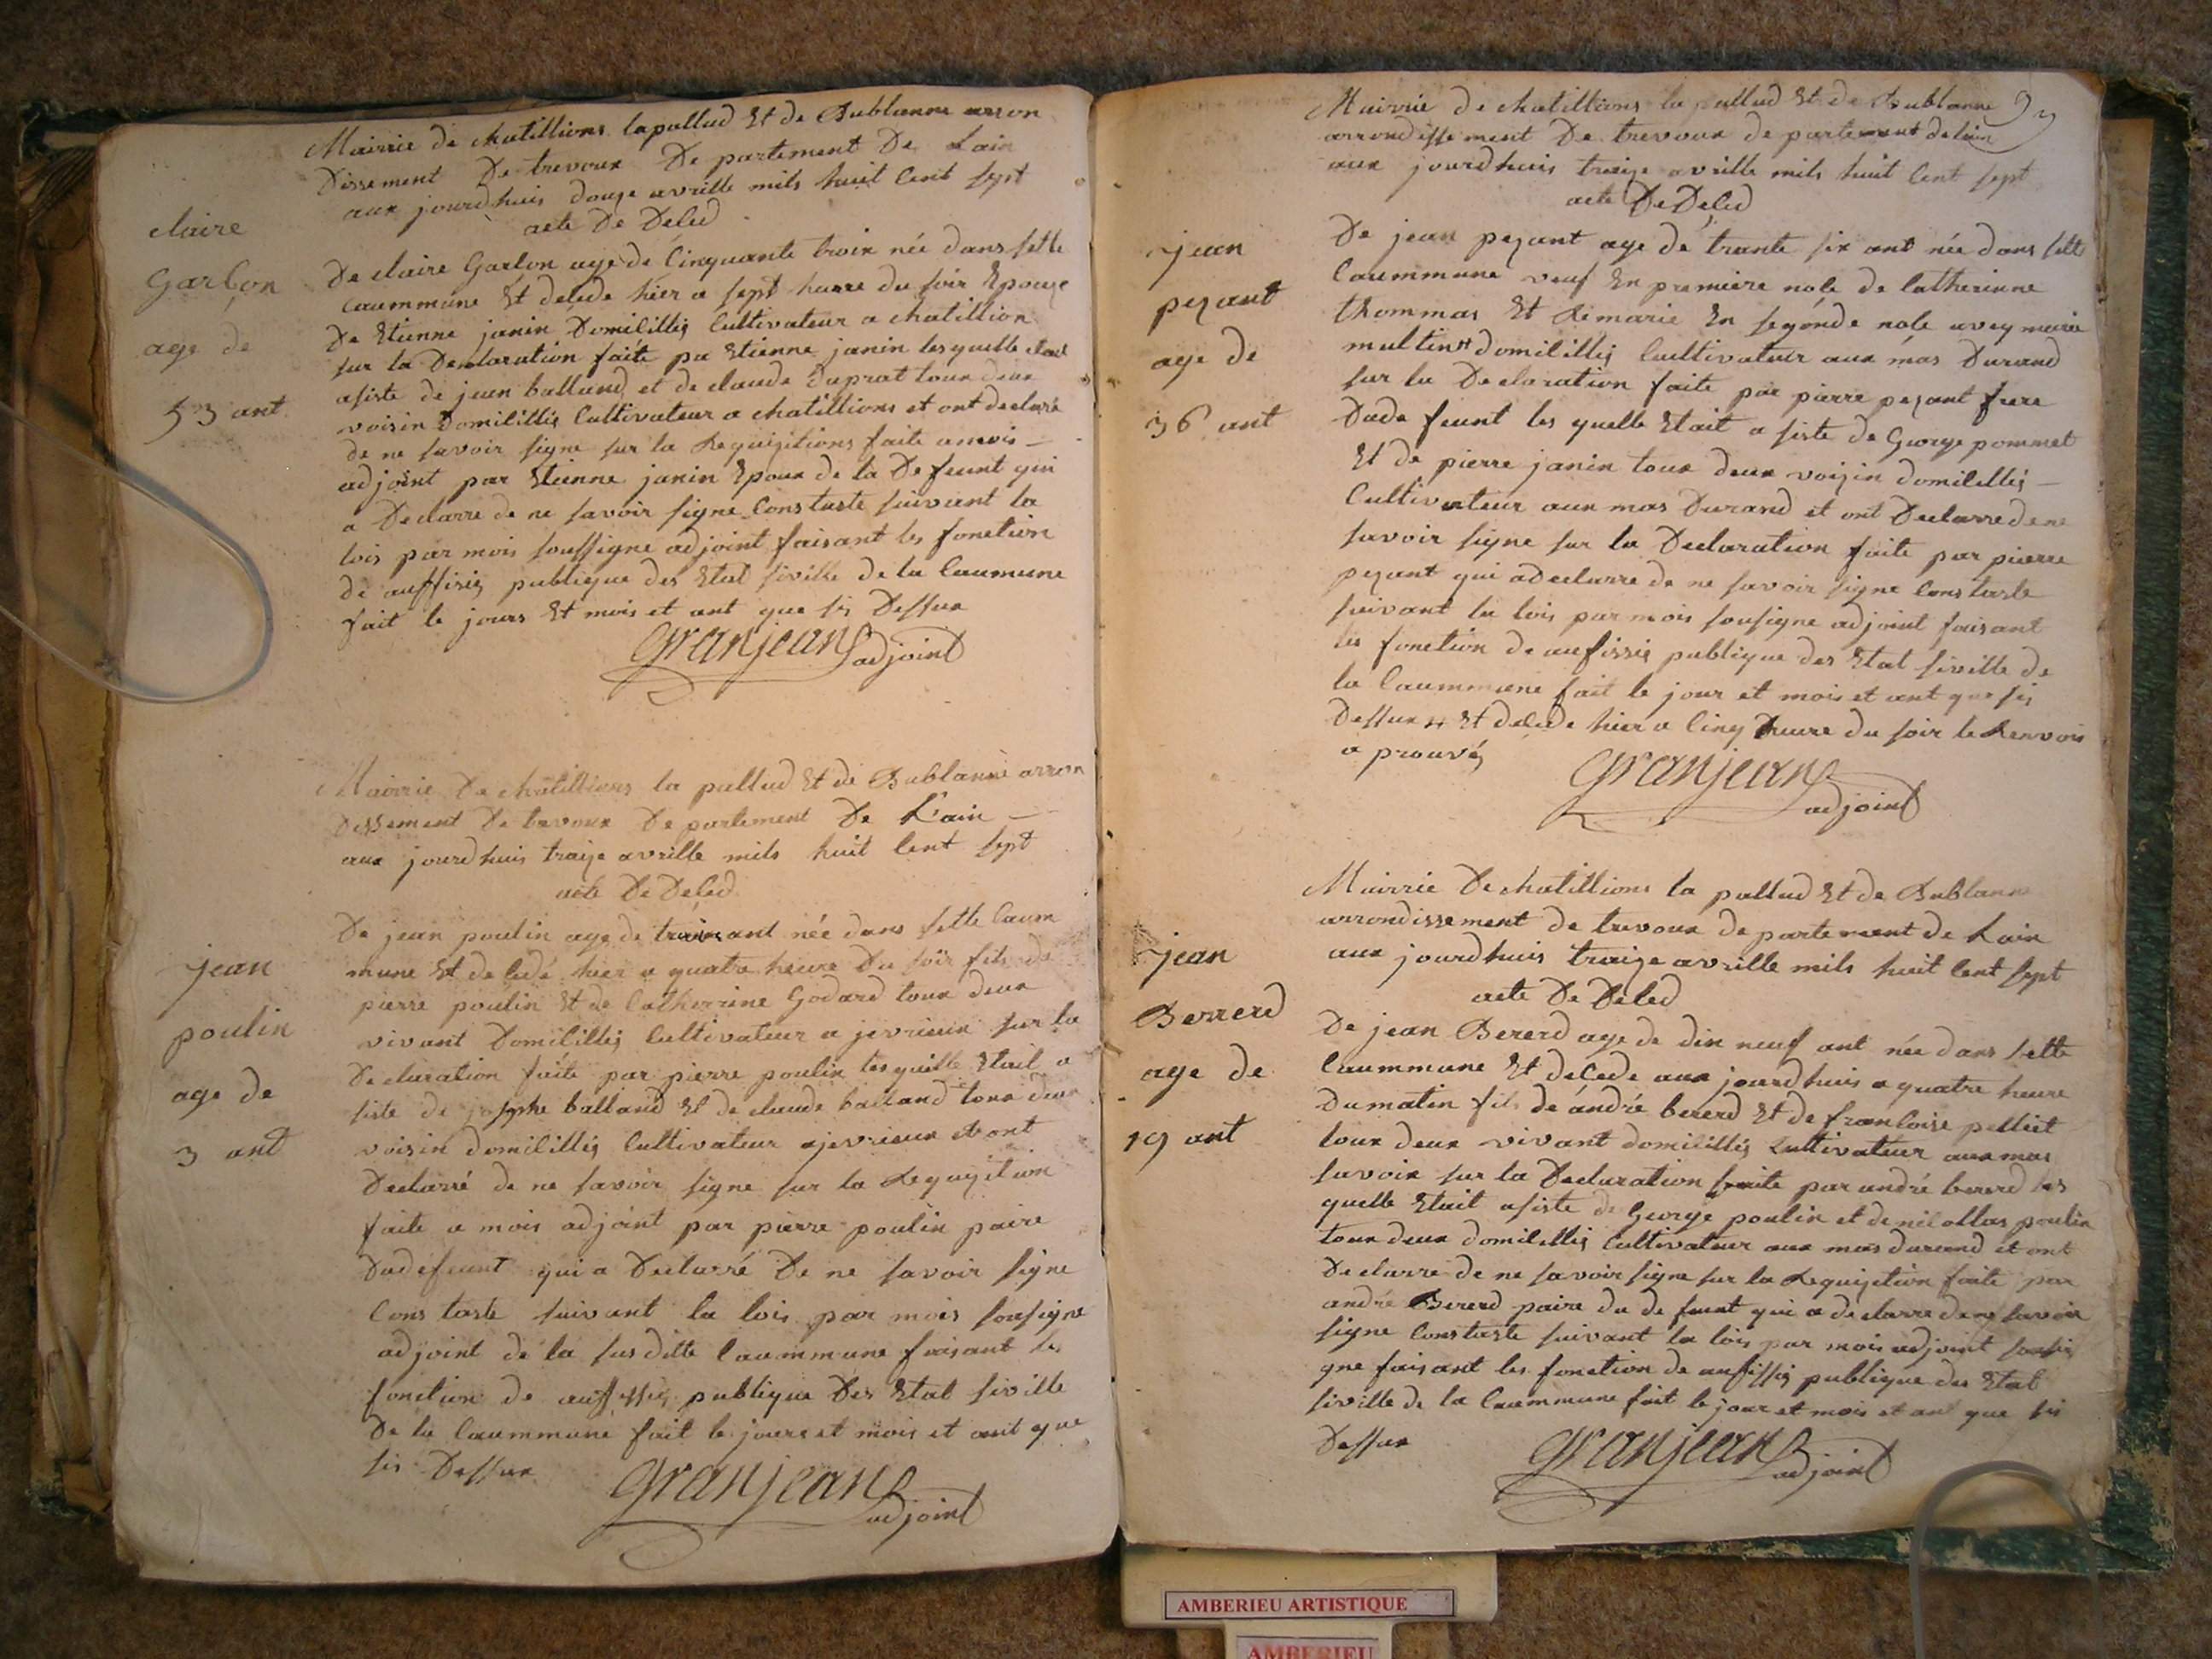 Mairrie de chatillions la pallud Et de Bublanne arron
dissement De trevoux De partement De Lain
aux jourdhuis douze avrille mils huit Cent sept
acte De Deled
claire
Garlon
age de
53 ant
De claire Garlon age de Cinquante troix née dans sette
Caummune Et deledé hier a sept heure du soir Epouze
De Etienne janin Domilillié Cultivateur a chatillion
sur la Declaration faite pa Etienne janin les quelle etait
asiste de jean balland et de claude duprat toux deux
voisin Domilillié Cultivateur a chatillions et ont declaré
de ne savoir signe sur la Requizitions faite a mois
adjoint par Etienne janin Epoux de la Defeunt qui
a Declarre de ne savoir signe Constaste suivant la
lois par mois soussigne adjoint faisant les fonction
de auffisié publique des Etat siville de la Caumune
fait le jours Et mois et ant que sis Dessux
Granjean adjoint
Mairrie De chatillions la pallud Et de Bublanne arron
dissement De trevoux De partement De L'ain
aux jourdhuis traize avrille mils huit Cent sept
acte De Deled
jean
poulin
age de
3 ant
De jean poulin age de troix ant née dans sette Caum
mune Et de ledé hier a quatre heure Du soir fils de
pierre poulin Et de Catherrine Godard toux deux
vivant Domilillié Cultivateur a jevrieux sur la
Declaration faite par pierre poulin les quelle Etait a
siste de josephe balland Et de claude balland toux deux
voisin domilillié Cultivateur a jevrieux et ont
Declarré de ne savoir signe sur la Requizition
faite a mois adjoint par pierre poulin paire
Dudefeunt qui a Declarré De ne savoir signe
Constaste suivant la lois par mois sousigne
adjoint de la susditte Caummune faisant les
fonction de auffissié publique Des Etat siville
De la Caummune fait le jours et mois et ant que
sis Dessux
Granjean adjoint
Mairrie de chatillions la pallud Et de Bublanne
arrondissement De trevoux de partement de lain
aux jourdhuis traize avrille mils huit Cent sept
acte De Deled
jean
pezant
age de
36 ant
De jean pezant age de trante six ant née dans sette
Caummune veuf En premiere nole de Catherinne
thommas Et Remarie En segonde nole avey marie
multin # domilillié Cultivateur aux mas Durand
sur la Declaration faite par pierre pezant frere
Dude feunt les quelle Etait a siste de George pommet
Et de pierre janin toux deux voizin domilillié
Cultivateur aux mas Durand et ont Declarre de ne
savoir signe sur la Declaration faite par pierre
pezant qui a declarre de ne savoir signe Constaste
suivant la lois par mois sousigne adjoint faisant
les fonction de aufissié publique des Etat siville de
la Caummune fait le jour et mois et ant que sis
Dessux # Et delede hier a Cinq heure du soir le Renvois
a prouvé
Granjean adjoint
Mairrie De chatillions la pallud Et de Bublanne
arrondissement de trevoux de partement de Lain
aux jourdhuis traize avrille mils huit Cent sept
acte De Deled
jean
Berrerd
age de
19 ant
De jean Bererd age de dix neuf ant née dans sette
Caummune Et delede aux jourdhuis a quatre heure
Dumatin fils de andré bererd Et de franloise pelliet
toux deux vivant domilillié Cultivateur aux mas
savoix sur la Declaration faite par andré bererd les
quelle Etait asiste de George poulin et de nilollas poulin
toux deux domilillié Cultivateur aux mas durand et ont
Declarre de ne savoir signe sur la Requizition faite par
andré Bererd paire du defeunt qui a declarre de ne savoir
signe Constaste suivant la lois par mois adjoint sousi
gne faisant les fonction de aufissié publique des Etat
siville de la Caummune fait le jour et mois et ant que sis
Dessux
Granjean adjoint
AMBERIEU ARTISTIQUE
AMBERIEU